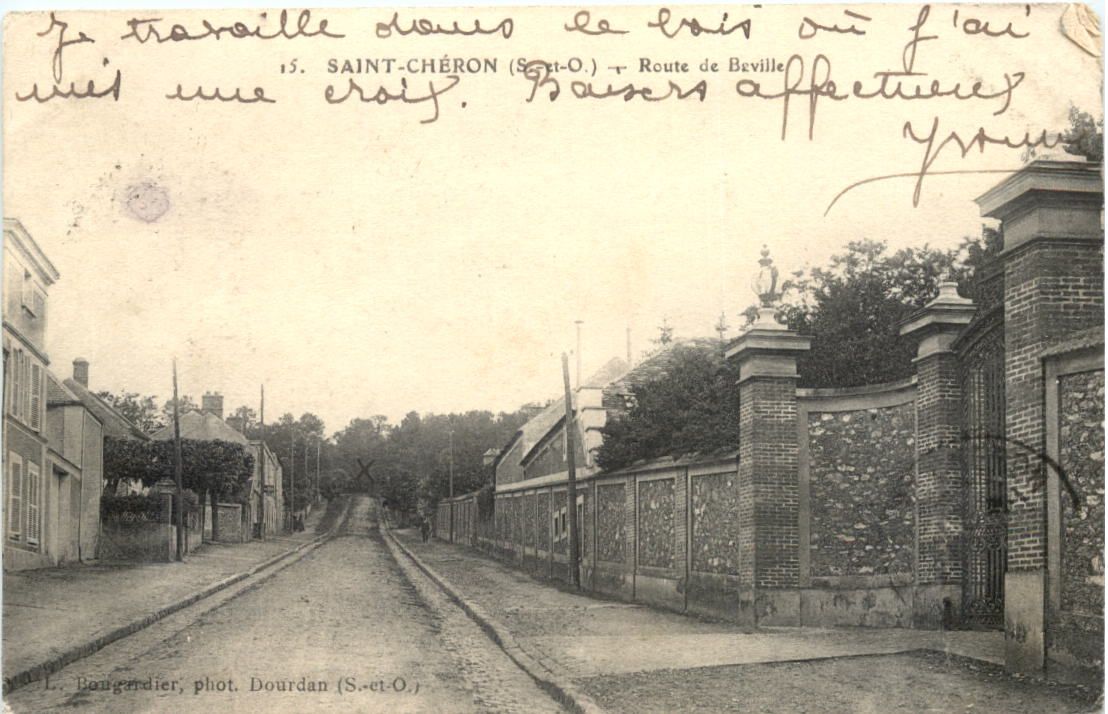 Je travaille dans le bois où j'ai
15. SAINT-CHÉRON (S.-et-O.) — Route de Baville
mis une croix. Baisers affectueux
Yvonne
L. Bougardier, phot. Dourdan (S.-et-O.)